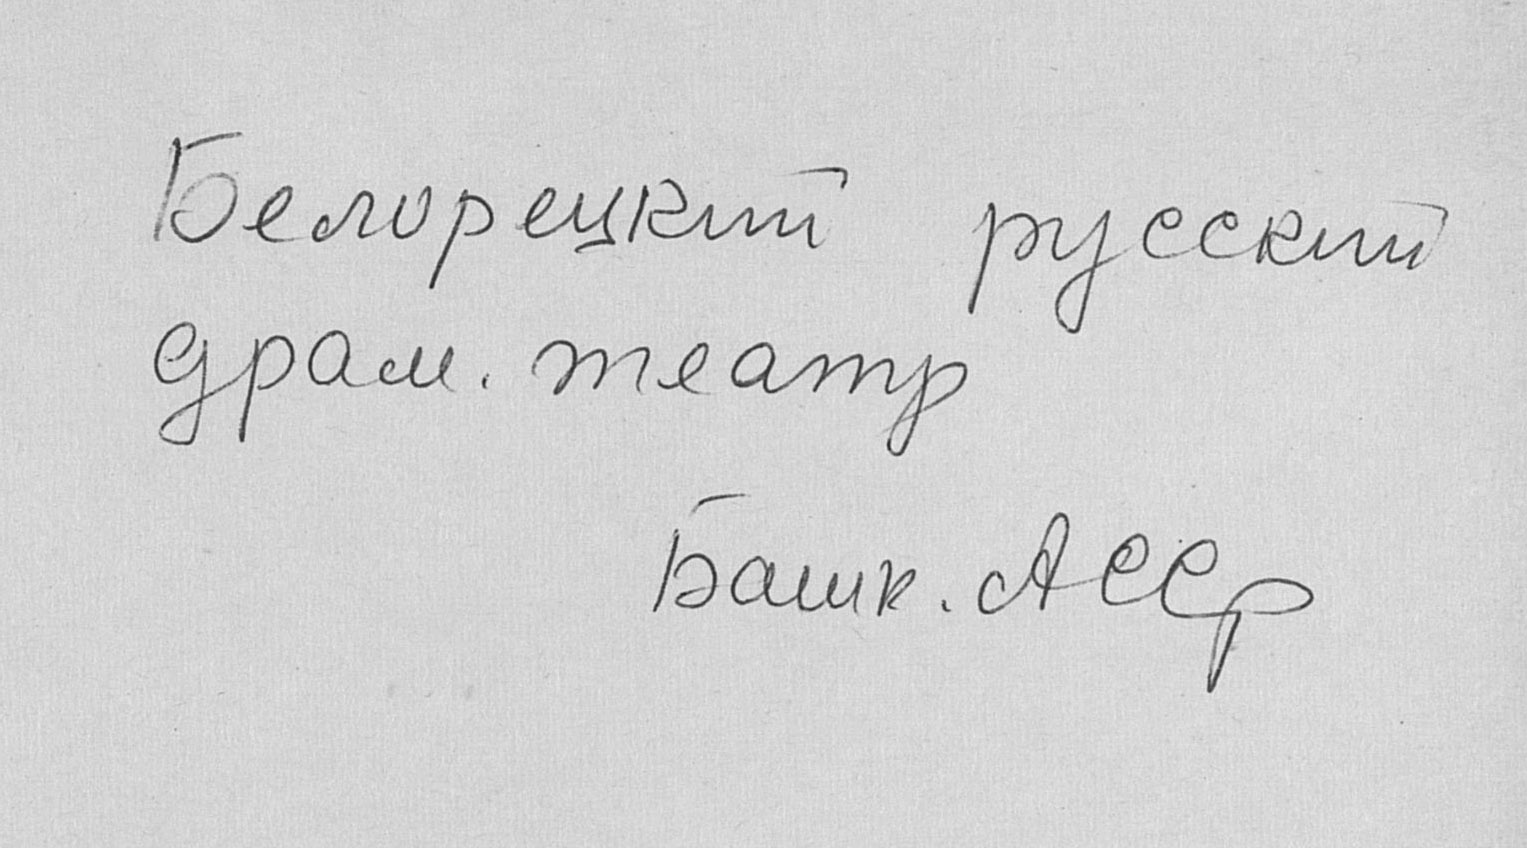 Белорецкий русский
драм. театр
Башк. АССР